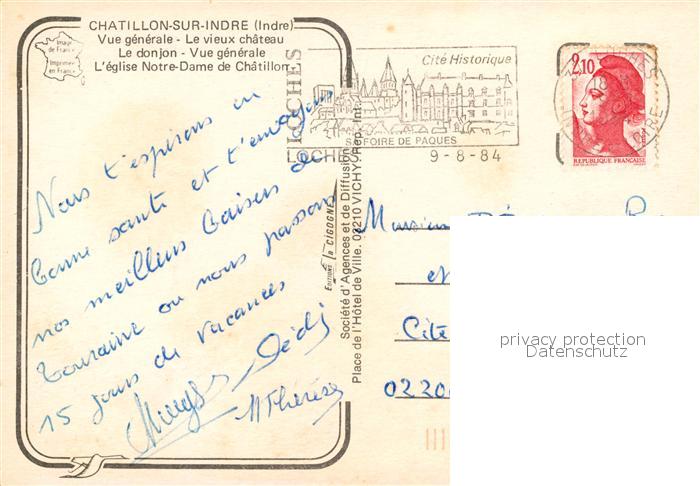 CHATILLON-SUR-INDRE (Indre)
Vue générale - Le vieux château
Le donjon - Vue générale
L'église Notre-Dame de Châtillon
Image de France
Imprimée en France
Nous t'espérons en
bonne santé et t'envoyons
nos meilleurs baisers de
Touraine où nous passons
15 jours de vacances
Dédé
M Thérèse
LOCHES
Cité Historique
SA FOIRE DE PAQUES
LOCHES
9-8-84
2,10
REPUBLIQUE FRANÇAISE
Editions la CIGOGNE
Société d'Agences et de Diffusion
Place de l'Hôtel de Ville. 03210 VICHY. Rep. Int.
Monsieur
et
Cité
0220
privacy protection
Datenschutz